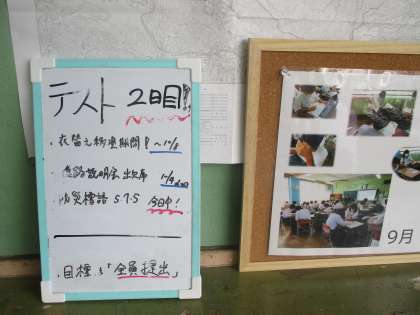 テスト 2日目!!
・衣替え移行期間! ~11/8
説明会 出欠席
防災標語 5 7 5 今日中!
・目標は「全員提出」
9月